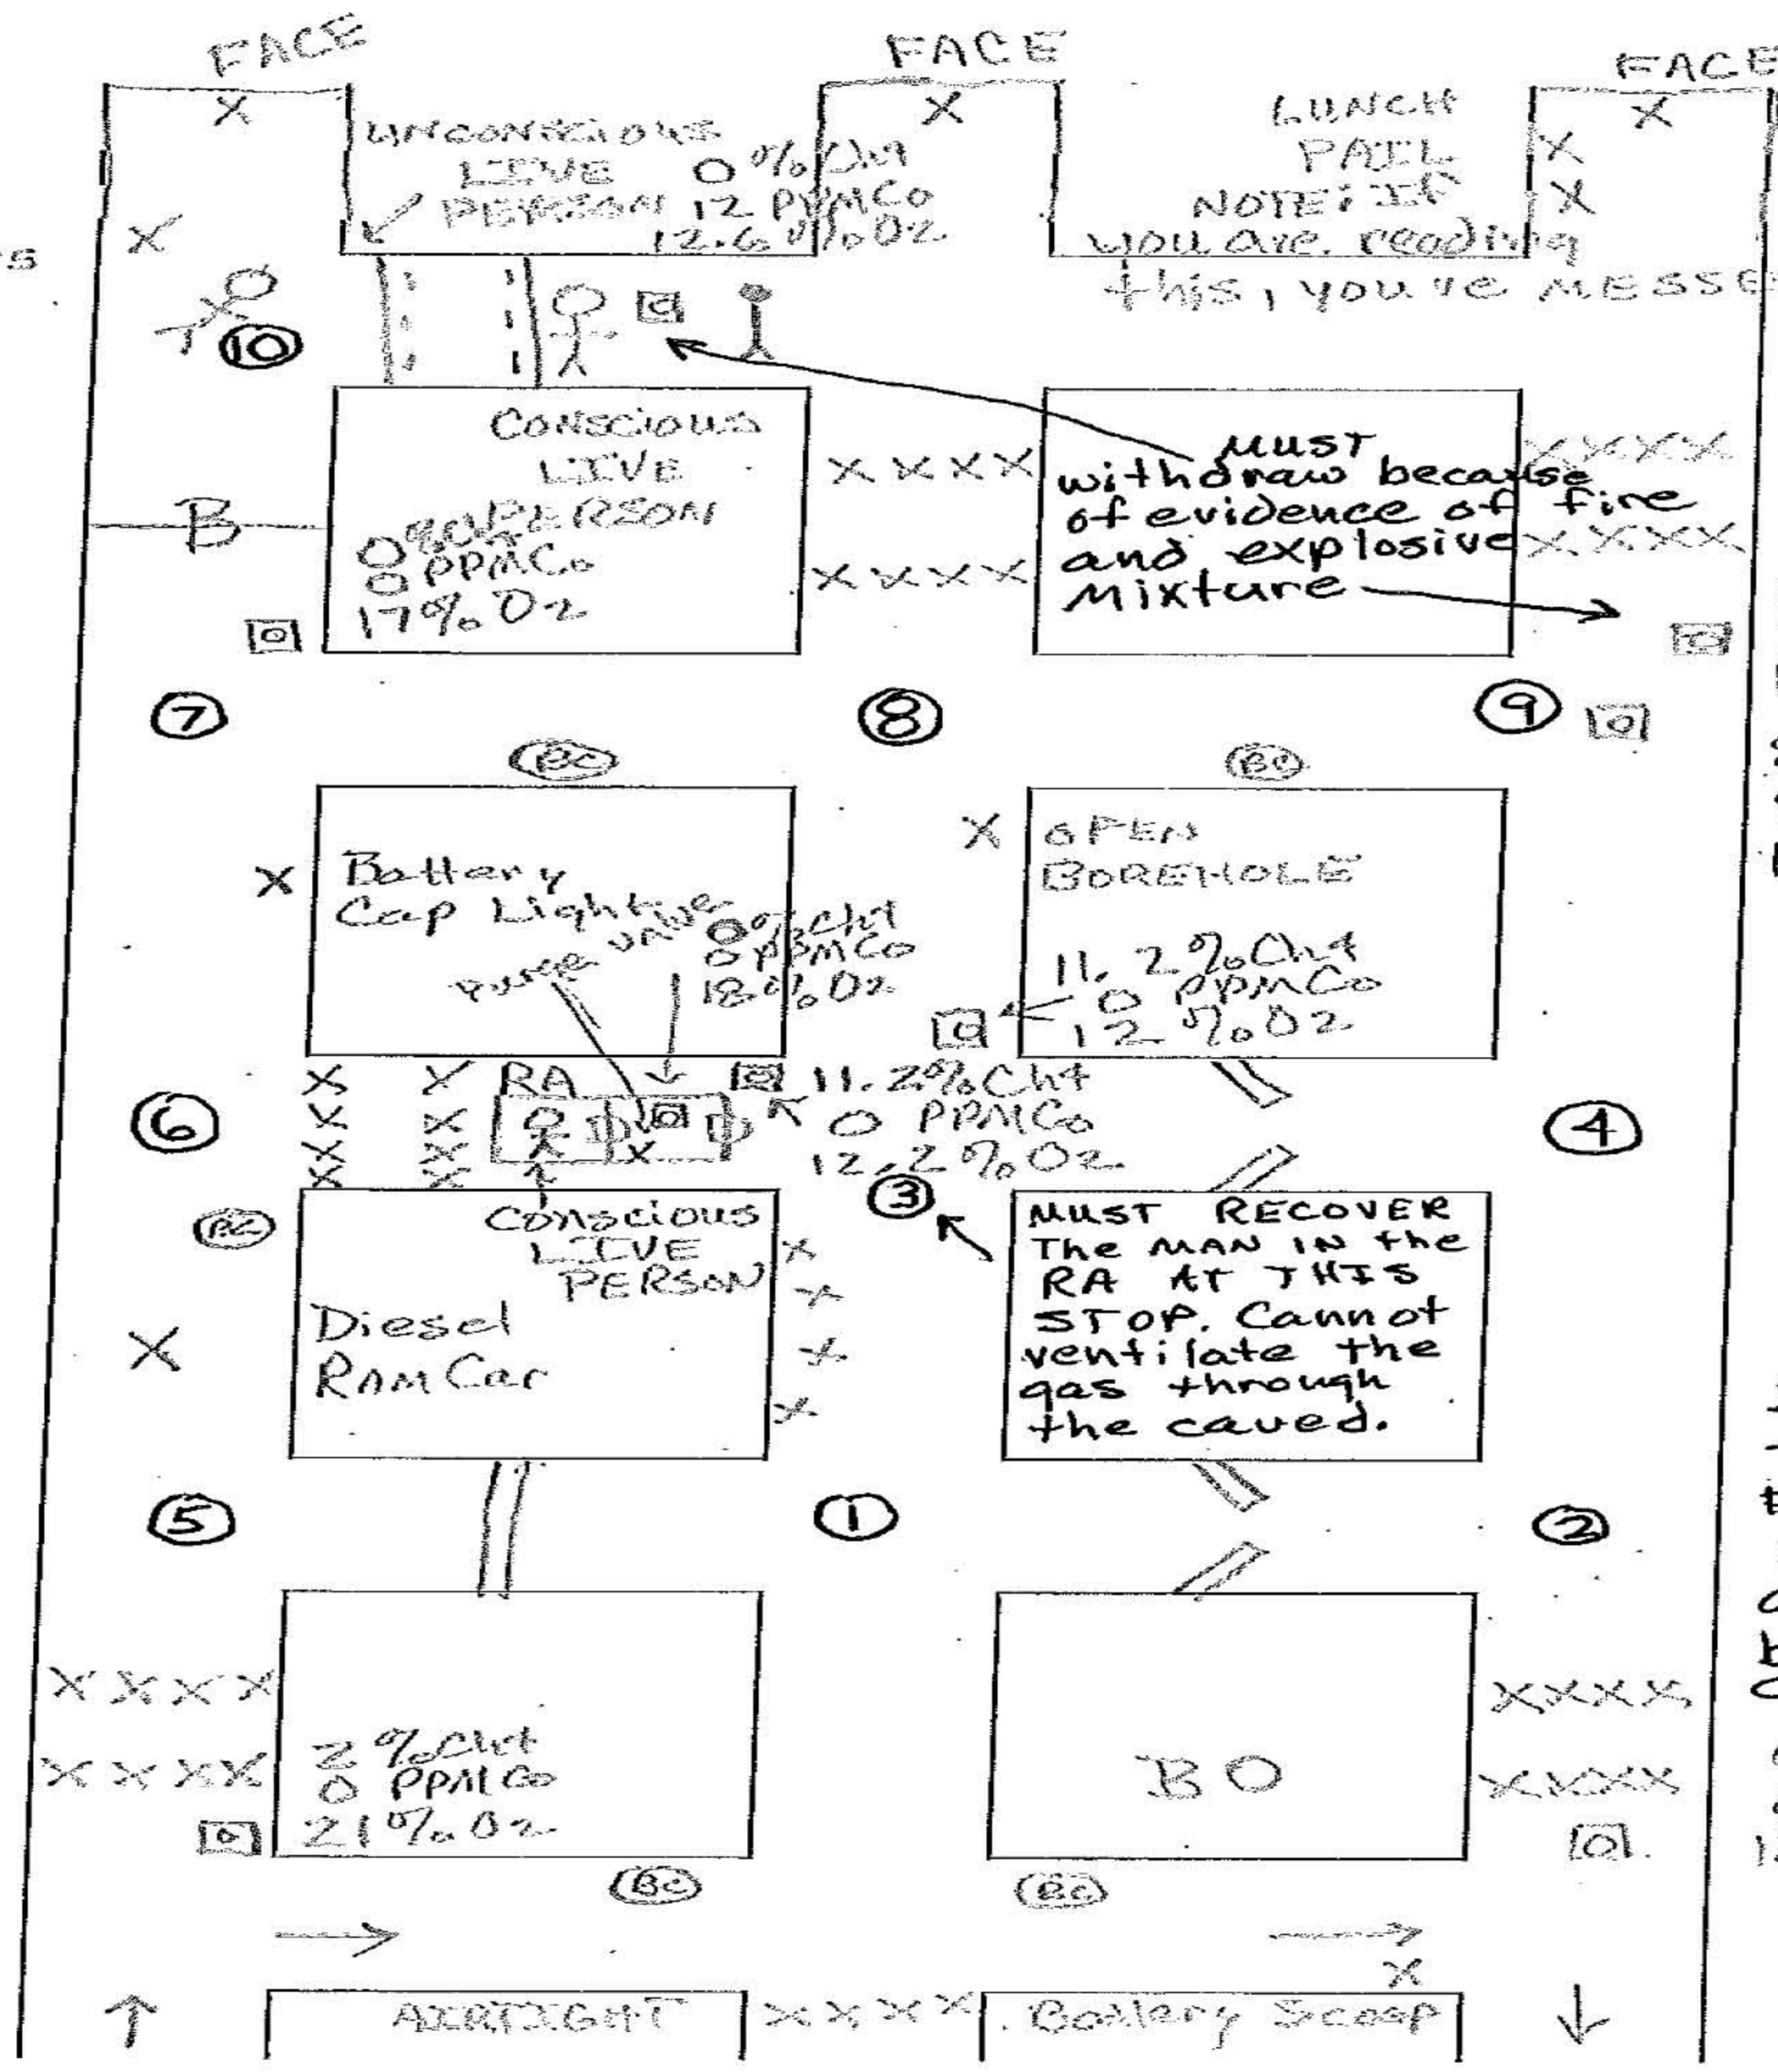 FACE
FACE
FACE
UNCONSCIOUS
LIVE
PERSON
0 % CH4
12 PPM CO
12.6 % O2
LUNCH
PAIL
NOTE: IF
you are reading
this, you've MESSE
X
X
X
X
X
X
s
10
CONSCIOUS
LIVE
PERSON
0 % CH4
0 PPM CO
17% O2
B
XXXX
XXXX
MUST
withdraw because
of evidence of fire
and explosive
Mixture
XXXX
XXXX
7
8
9
BC
BC
X
Battery
Cap Light
Purge valve
0 % CH4
0 PPM CO
18 % O2
X
OPEN
BOREHOLE
11.2 % CH4
0 PPM CO
12 % O2
6
X X
X X
X X
X X
RA
X
11.2% CH4
0 PPM CO
12.2 % O2
4
3
BC
Conscious
LIVE
PERSON
X
X
X
X
X
Diesel
RAM Car
MUST RECOVER
The MAN IN the
RA AT THIS
STOP. Cannot
ventilate the
gas through
the caved.
5
1
2
XXXX
XXXX
2 % CH4
0 PPM CO
21 % O2
BO
XXXX
XXXX
BC
BC
X
AIRTIGHT
XXXX
Battery Scoop